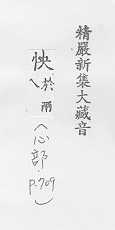 精嚴新集大藏音
怏於兩
(心部.
p.709
)